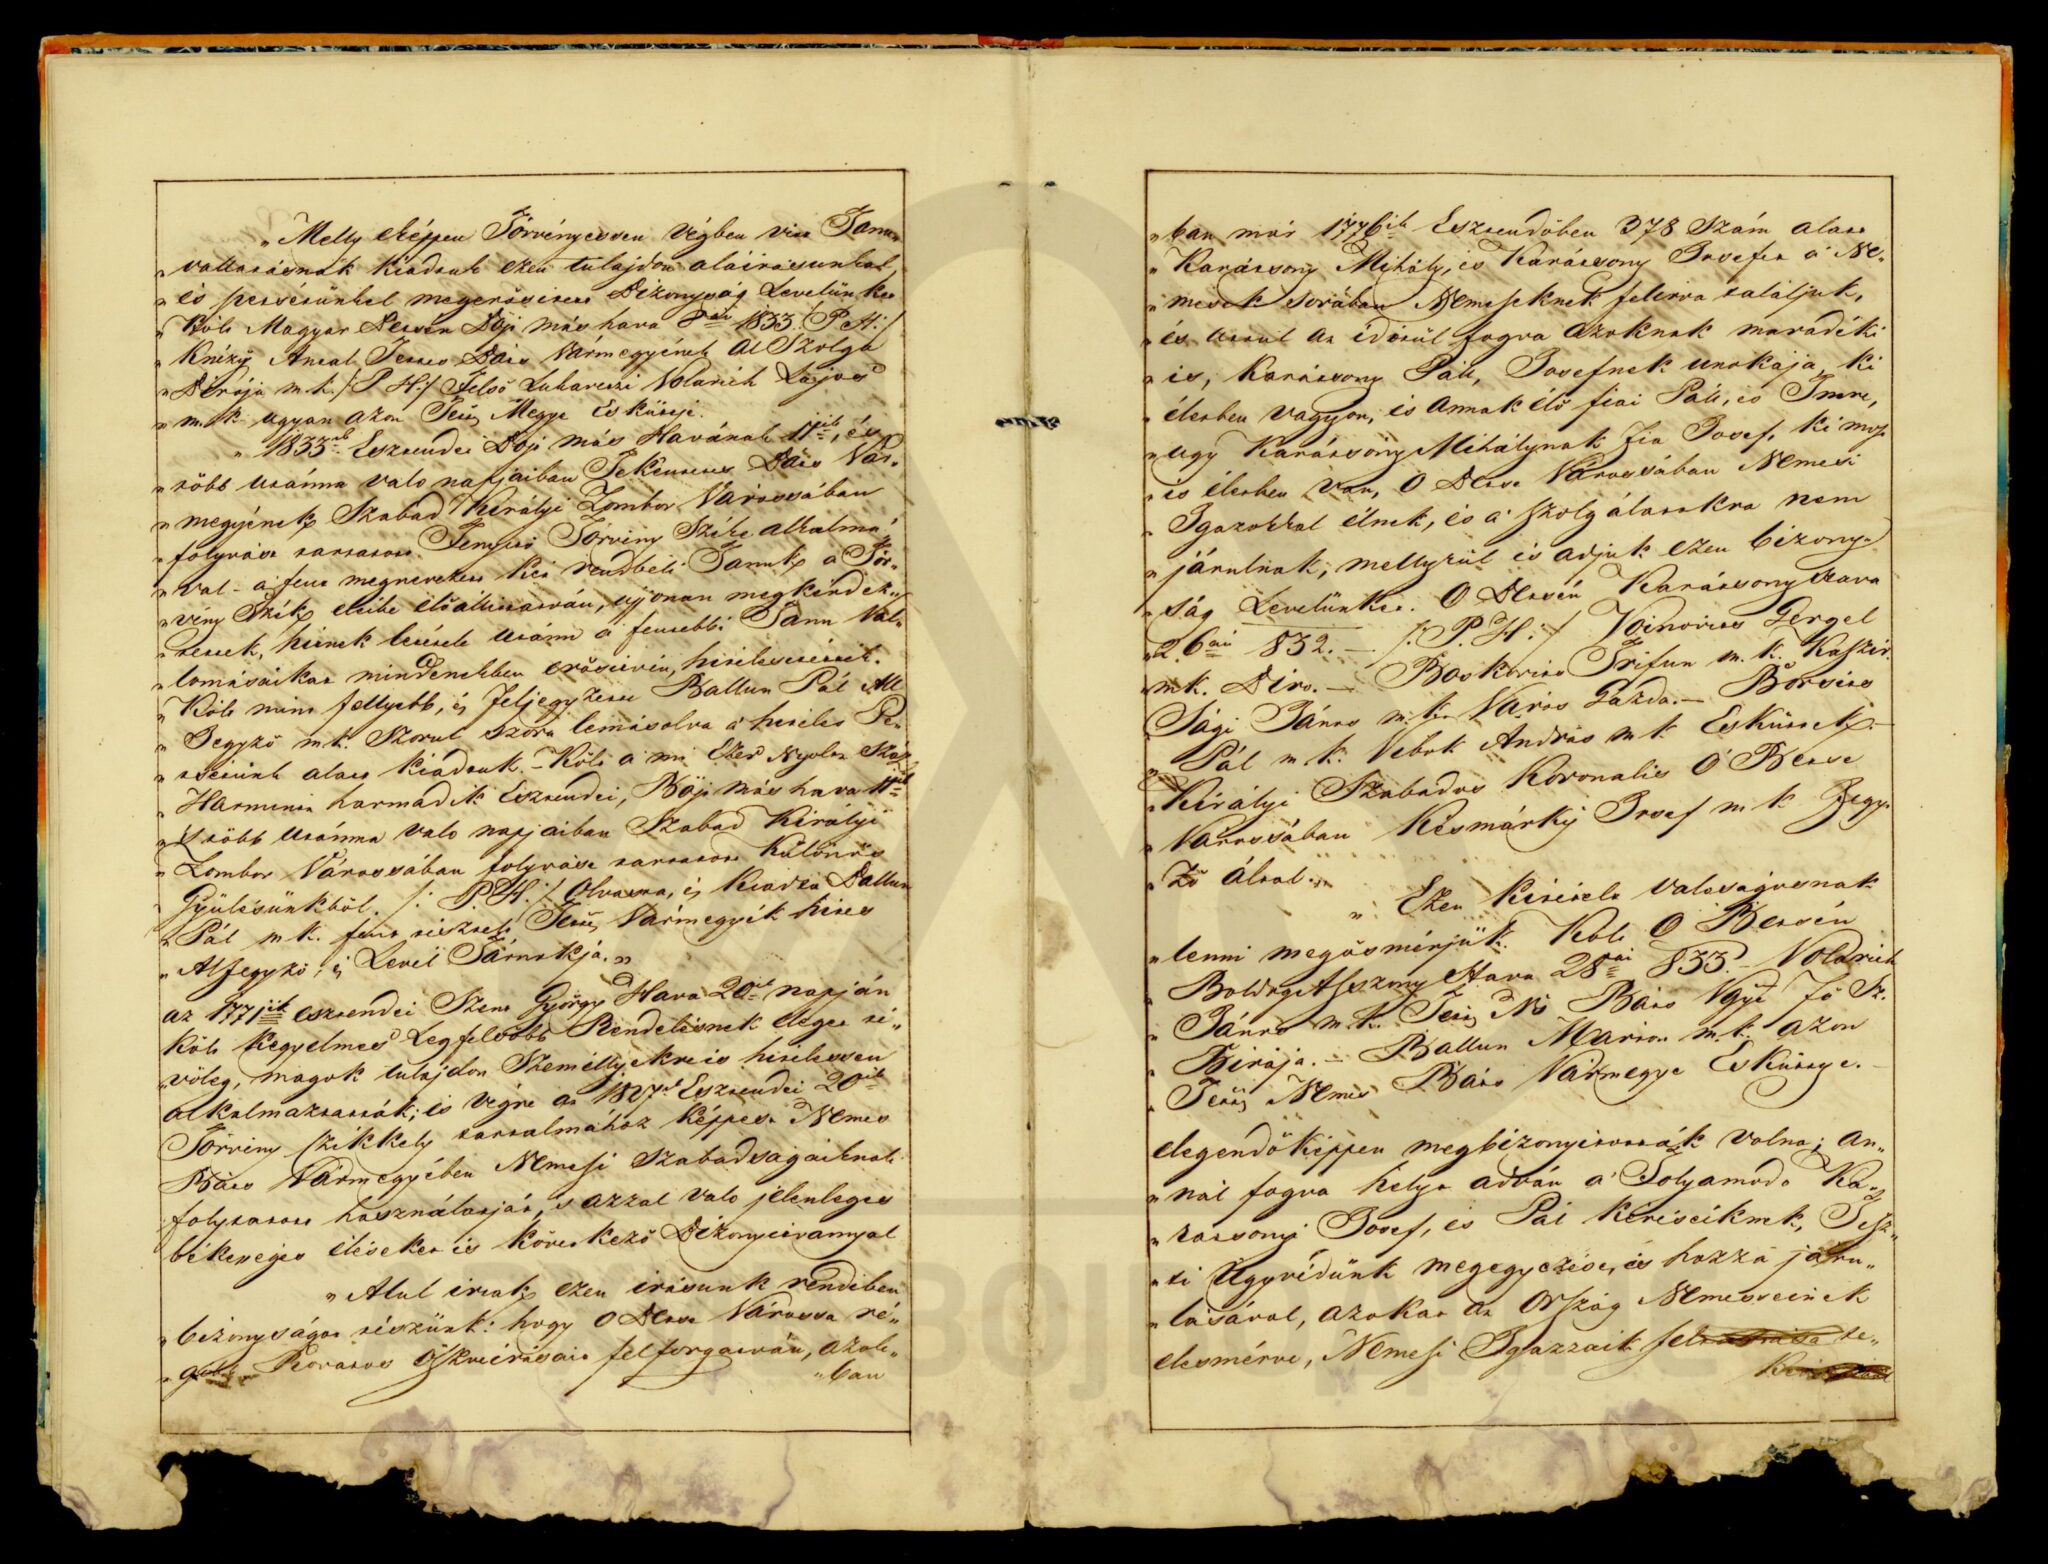 „Melly eképpen Törvényessen végben vitt Tanu„
„vallatásnak kiadtuk ezen tulajdon aláirásunkal,
„és petsétünkel megerősitett Bizonyság Levelünket
„Költt Magyar Betsén Böjt más hava 8án 1833. (P. H:/
„Knézÿ Antal Tettes Báts Vármegyének Al Szolga
„Birája m. k. /: P. H:/ Felső Lukaveczi Volarich Lajos
„m. k. ugyan azon Tettes Megye Esküttje.
„1833ik Esztendei Böjt más Havának 11ik, és
„több utánna való napjaiban Tekintetes Báts Vár„
„megyének Szabad Királyi Zombor Várossában
„folyvást tartatott Fenyitő Törvény Széke alkalmá„
„val a fent megnevezett két rendbeli Tanuk a' Tör„
„vény Szék eleibe előállittatván, ujonnan megkérdez„
„tettek, hitnek letétele utánn a' fentebbi Tanu Val„
„lomásaikat mindenekben erősitvén, hitelesitették.
„Költt mint fellyebb, és feljegyzette Ballun Pál Al
„Jegyző m. k. Szorul szora lemásolva a' hiteles Pe„
„tsétünk alatt kiadtuk. – Költ a' mi Ezer Nyoltz Száz
„Harmintz harmadik Esztendei, Böjt más hava 11ik
„'s több utánna való napjaiban Szabad Királyi
„Zombor Várossában folyvást tartatott Különös
„Gyülésünkből. /: P. H:/ Olvasta, és kiadta Ballun
„Pál m. k. fent tisztelt Tettes Vármegyék hites
„Aljegyző, és Levél Tárnokja.„
az 1771ik esztendei Szent György Hava 20ik napján
költt kegyelmes Legfelsőbb Rendelésnek eleget té„
vőleg, magok tulajdon Személlyekre is hitelessen
alkalmaztatták; és végre az 1807ik Esztendei 20ik
Törvény tzikkely tartalmához képpest Nemes
Báts Vármegyében Nemesi Szabadságaiknak
folytatott használatját, s azzal való jelenleges
békességes éléseket is következő Bizonyitvannyal
„Alul irtak ezen irásunk rendiben
„bizonyságot tészünk: hogy O Betse Várossa ré„
„gibb Rovatos Öszveirásait felforgatván, azok„
„ban
„ban már 1776ik Esztendőben 378 Szám alatt
„Karátsony Mihály, és Karátsony Josefet a' Ne„
„mesek sorában Nemeseknek felirva találjuk,
„és attul az időtül fogva azoknak maradéki
„is, Karátsony Pál, Josefnek unokája, ki
„életben vagyon, és annak élő fiai Pál, és Imre,
„ugy Karátsony Mihálynak fia Josef, ki most
„is életben van, O Betse Várossában Nemesi
„Igazokkal élnek, és a' szolgálatokra nem
„járulnak; mellyrül is adjuk ezen bizony„
„ság Levelünket. O Betsén Karátsony hava
„26án 832. — /: P. H:/ Voinovits Gergel
„m k. Biro. — Boskovits Trifun m. k. Kaszir.
Sági János m. k. Város Gazda. — Borsits
„Pál m k. Vebok András m k Esküttek. –
„Királyi Szabados Koronalis O Betse
„Várossában Késmárky Josef m k Jegy„
„ző által.„
„Ezen kitétele valoságosnak
„lenni megösmérjük. Költ O Betsén
„Boldog Asszony Hava 28án 833. – Volarich
„János m. k. Tettes Ns Báts Vgye Fő Sz.
„Birája. – Ballun Marton m. k. azon
„Tettes Nemes Báts Vármegye Esküttye. –
elegendőképpen megbizonyitották volna; an„
„nál fogva helyt adván a' Folyamodo Ka„
„ratsonyi Josef, és Pál kérésöknek, Tisz„
„ti Ügyvédünk megegyezése, és hozzá járu„
„lásával, azokat az Ország Nemesseinek
elesmérve, Nemesi Igazzaik